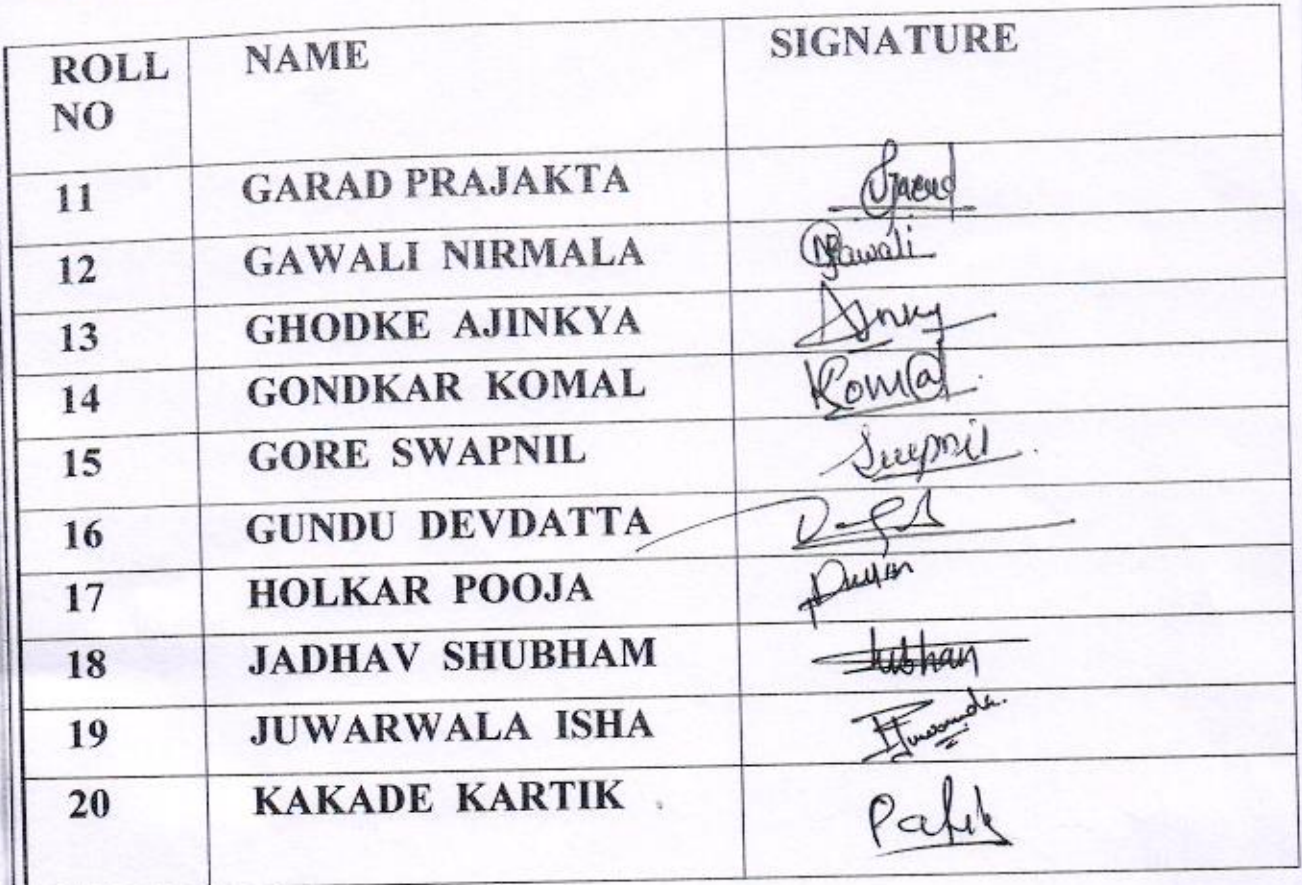 ROLL NO NAME SIGNATURE
11 GARAD PRAJAKTA
12 GAWALI NIRMALA Gawali
13 GHODKE AJINKYA
14 GONDKAR KOMAL Komal
15 GORE SWAPNIL
16 GUNDU DEVDATTA
17 HOLKAR POOJA
18 JADHAV SHUBHAM
19 JUWARWALA ISHA
20 KAKADE KARTIK